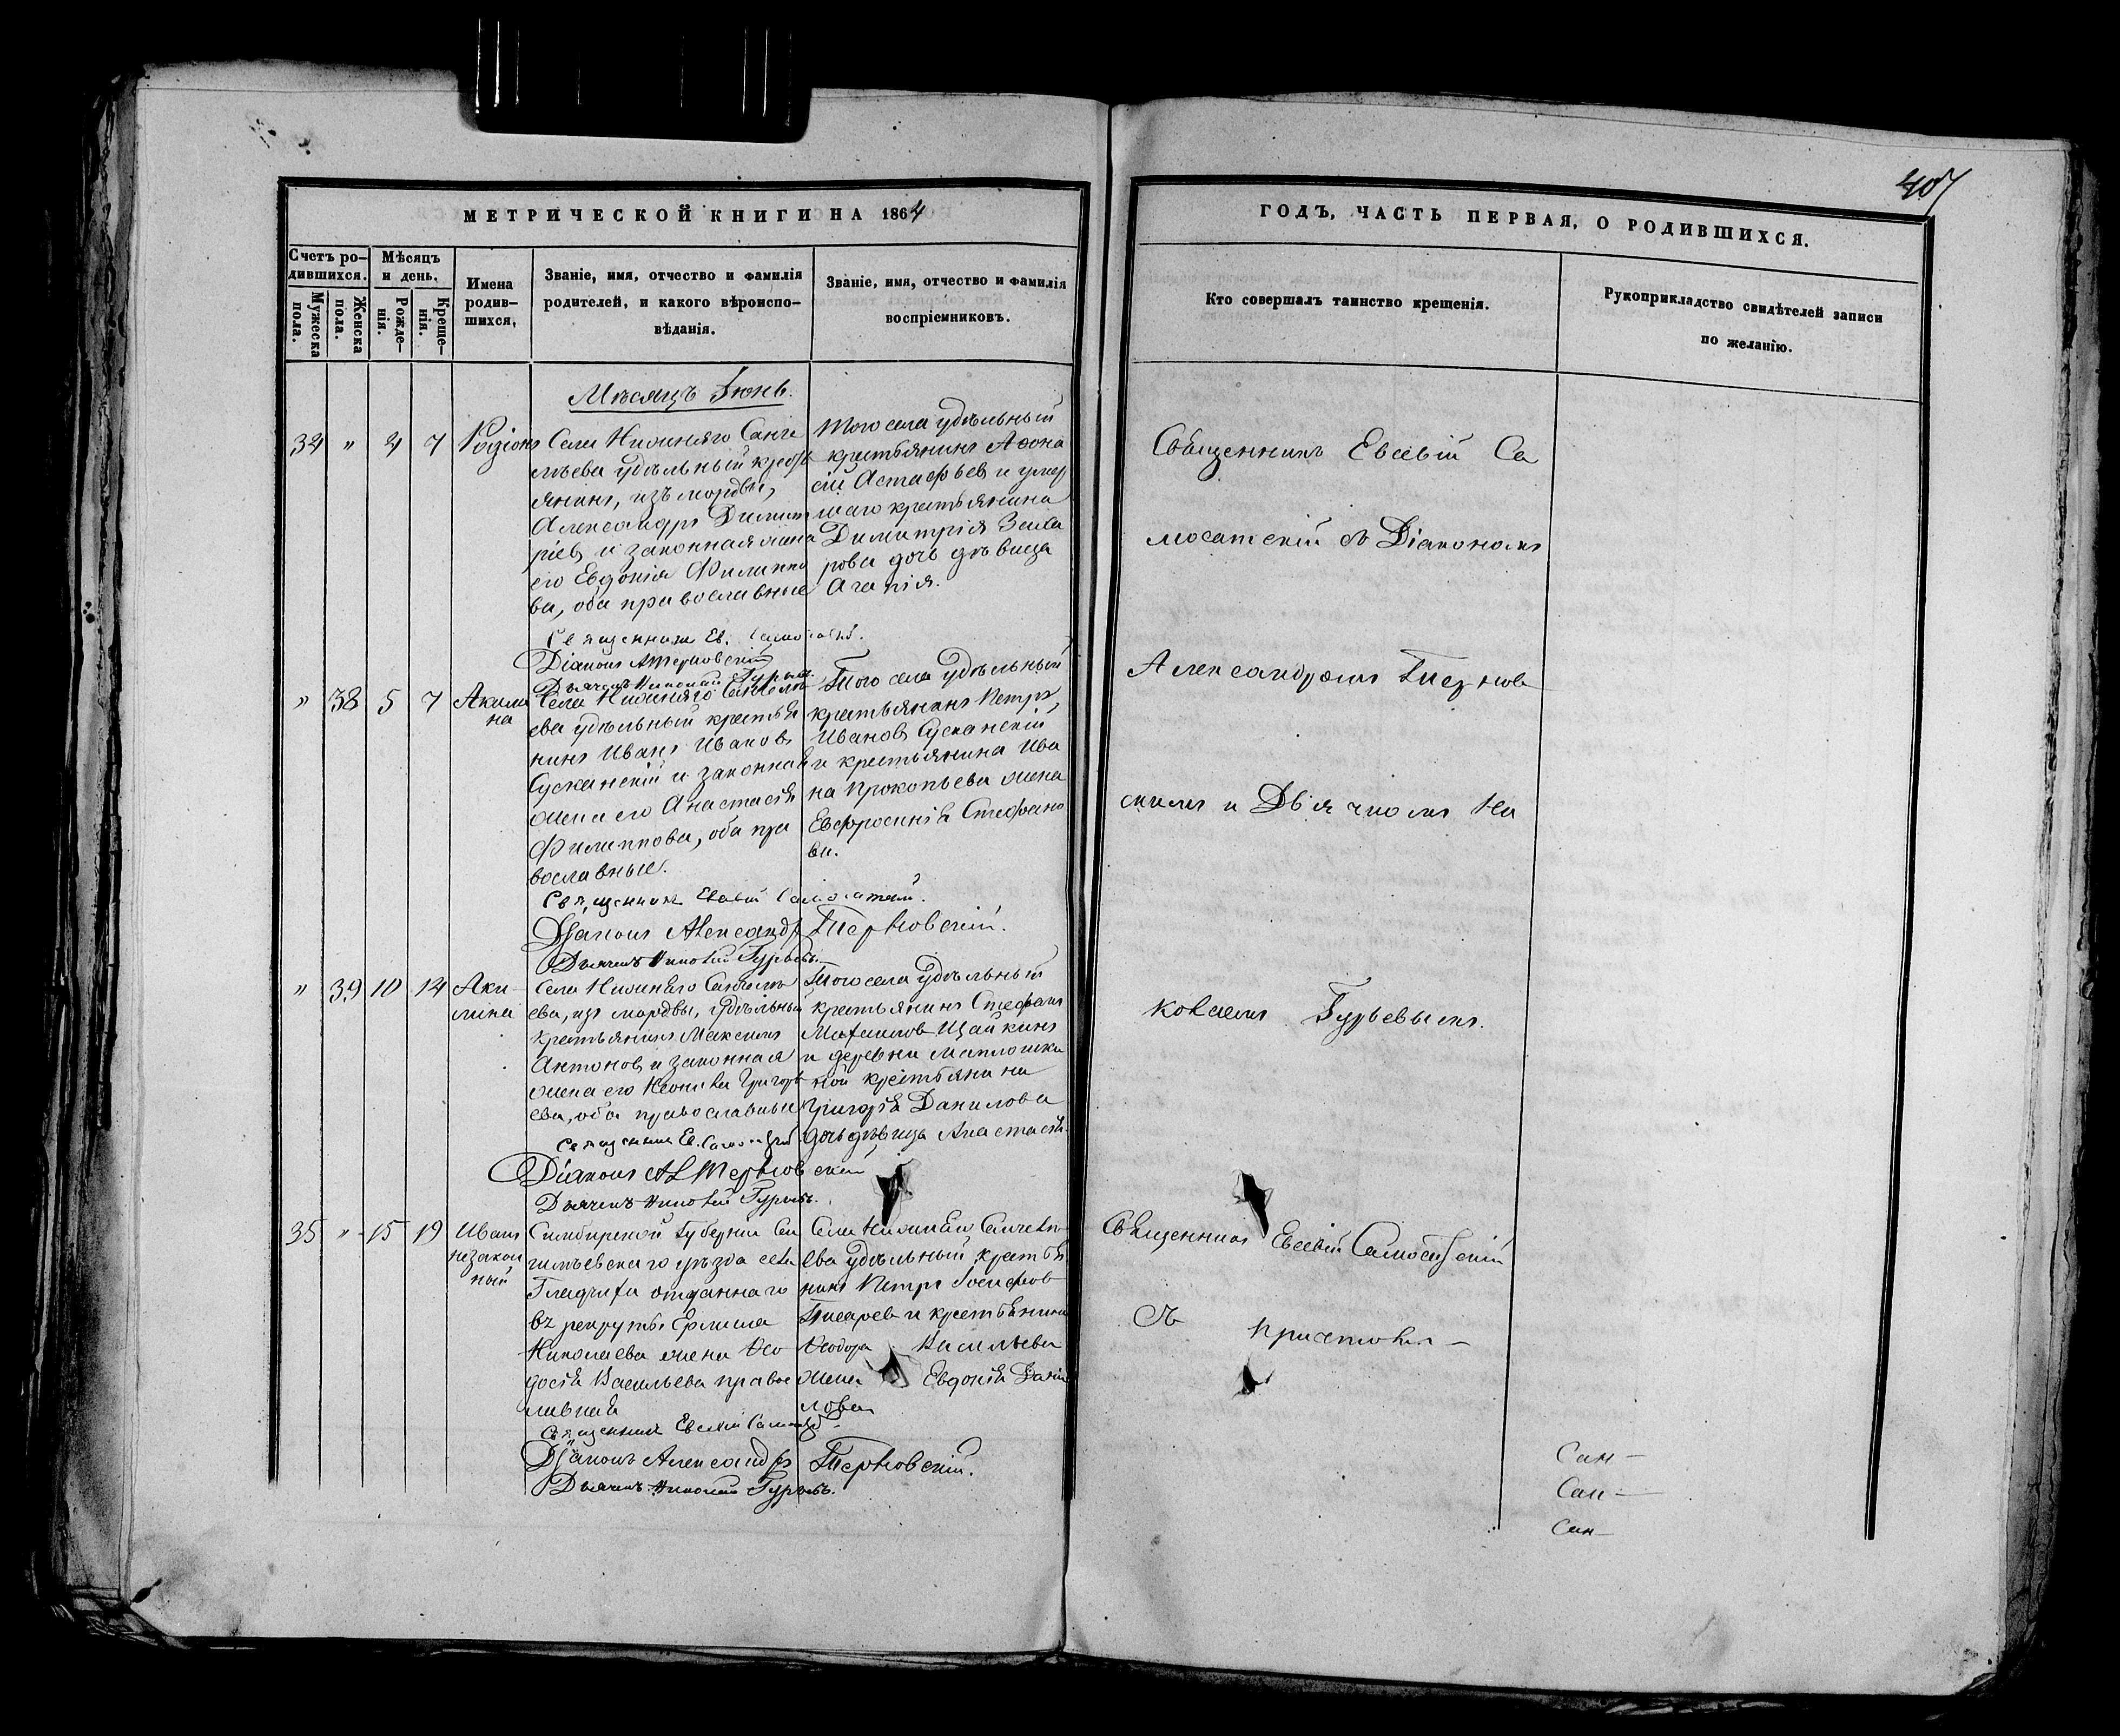 407
МЕТРИЧЕСКОЙ КНИГИ НА 1864
ГОДЪ, ЧАСТЬ ПЕРВАЯ, О РОДИВШИХСЯ.
Счетъ ро-
дившихся.
Мужеска пола.
Женска пола.
Мѣсяцъ
и день.
Рожде-
нія.
Креще-
нія.
Имена
родив-
шихся,
Званіе, имя, отчество и фамилія
родителей, и какого вѣроиспо-
вѣданія.
Званіе, имя, отчество и фамилія
воспріемниковъ.
Кто совершалъ таинство крещенія.
Рукоприкладство свидѣтелей записи
по желанію.
Мѣсяцъ Іюнь.
34 " 4 7 Родіонъ
Села Нижняго Санче
лѣева удѣльный крест
янинъ, изъ мордвы,
Александръ Димит
ріевъ и законная жена
его Евдокія Филиппо
ва, оба православные
Того села удѣльный
крестьянинъ Аѳона
сій Астафьевъ и умер
шаго крестьянина
Димитрія Заха
рова дочь дѣвица
Агапія.
Священникъ Ев.
Діаконъ А Терновскій
Дьячекъ Николай Гурьевъ
" 38 5 7 Акили
на
Села Нижняго Санчелѣ
ева удѣльный крестья
нинъ Иванъ Ивановъ
Сусканскій и законная
жена его Анастасія
Филиппова, оба пра
вославные.
Того села удѣльный
крестьянинъ Петръ
Ивановъ Сусканскій
и крестьянина Ива
на Прокопьева жена
Евфросинія Стефано
ва.
Священникъ Евсевій
Діаконъ Александръ Терновскій.
Дьячекъ Николай Гурьевъ.
" 39 10 14 Аки-
лина
Села Нижняго Санчелѣ
ева, изъ мордвы, удѣльный
крестьянинъ Максимъ
Антоновъ и законная
жена его Неонила Григорь
ева, оба православные
Того села удѣльный
крестьянинъ Стефанъ
Михаиловъ
и деревни
крестьянина
Григорія Данилова
дочь дѣвица Анастасія.
Священникъ Ев.
Діаконъ Ал Терновскій
Дьячекъ Николай Гурьевъ.
35 " 15 19 Иванъ
незакон
ный
Симбирской Губерніи Сен
гилѣевскаго уѣзда села
отданнаго
въ рекруты Ермила
Николаева жена Ѳео
досія Васильева правос
лавная
Села Нижняго Санчелѣ
ева удѣльный крестья
нинъ Петръ Іосифовъ
Писаревъ и крестьянина
Ѳеодора Васильева
жена Евдокія Дани
лова
Священникъ Евсевій
Діаконъ Александръ Терновскій.
Дьячекъ Николай Гурьевъ.
Священникъ Евсевій Са
мосатскій съ Діакономъ
Александромъ Тернов-
скимъ и Дьячкомъ Ни
колаемъ Гурьевымъ.
Священникъ Евсевій Самосатскій
съ причтомъ
Сан-
Сан-
Сан-